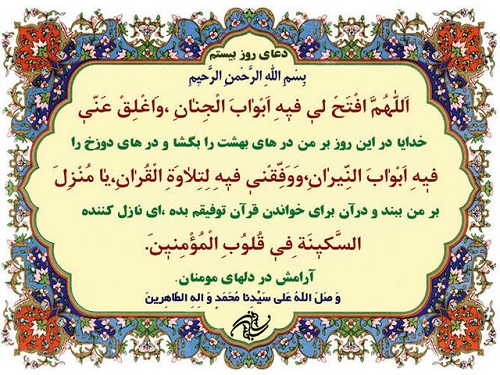 دعای روز بیستم
بِسْمِ اللهِ الرَّحْمنِ الرَّحیمِ
اَللّهُمَّ افْتَحْ لی فیهِ اَبْوابَ الْجِنانِ ،وَاَغْلِقْ عَنّی
خدایا در این روز بر من در های بهشت را بگشا و در های دوزخ را
فیهِ اَبْوابَ النّیرانِ،وَوَفِّقْنی فیهِ لِتِلاوَةِ الْقُرْانِ،یا مُنْزِلَ
بر من ببند و درآن برای خواندن قرآن توفیقم بده ،ای نازل کننده
السَّکینَةِ فِی قُلُوبِ الْمُؤْمِنینَ.
آرامش در دلهای مومنان.
وَ صَلَ اللهُ عَلی سَیِّدنا مُحَمَدٍ وَ الِهِ الطّاهِرینَ